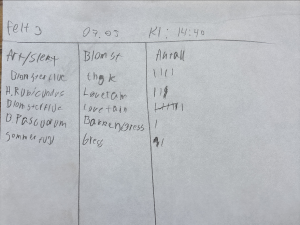 felt 3 07.05 Kl: 14:40
Art/Slekt Blomst Antall
Blomsterflue IIII
H. Rubicundus Løvetann III
Blomsterflue Løvetann
B. Pascuorum I
Sommerfugl Gress